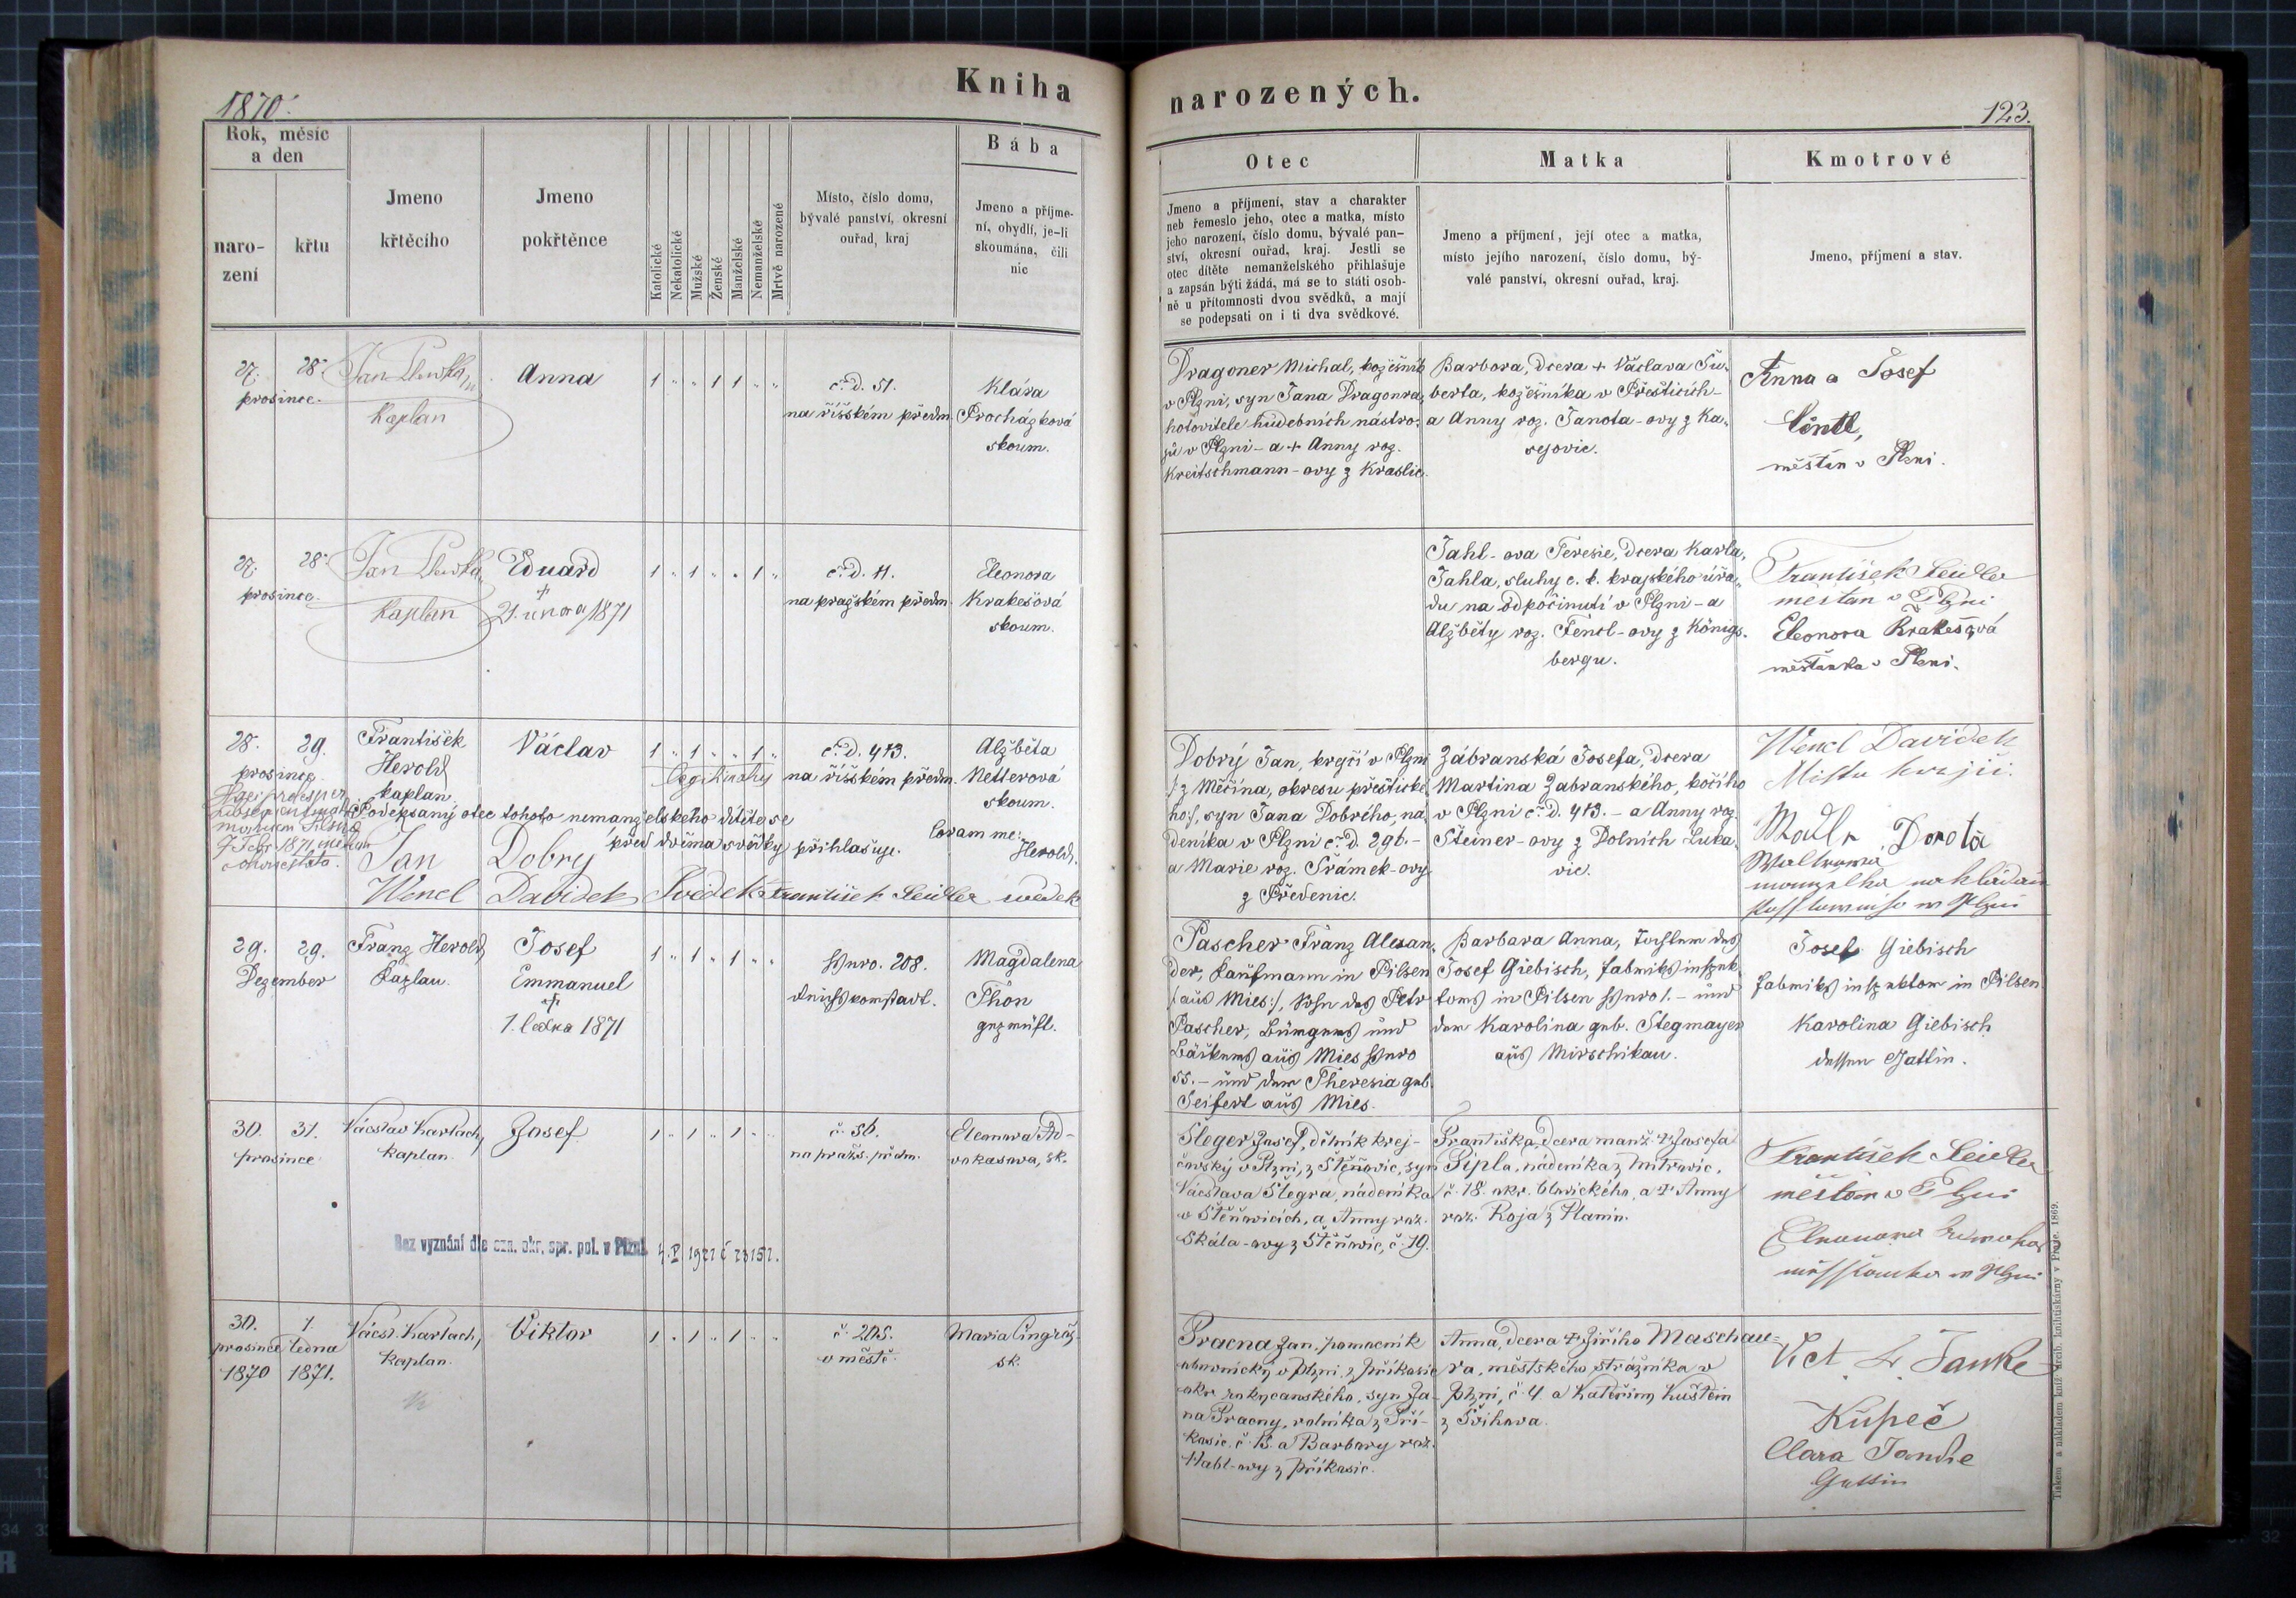 Kniha
1870.
Rok, měsíc
a den
naro-
zení
křtu
Jmeno
křtěcího
Jmeno
pokřtěnce
Katolické
Nekatolické
Mužské
Ženské
Manželské
Nemanželské
Mrtvě narozené
Místo, číslo domu,
bývalé panství, okresní
ouřad, kraj
Bába
Jmeno a příjme-
ní, obydlí, je-li
skoumána, čili
nic
27. 28.
prosince.
Jan
Kaplan
Anna
1 " " 1 1 " "
č. d. 51.
na říšském předm.
Klára
Procházková
skoum.
27. 28.
prosince.
Jan
Kaplan
Eduard
+
21. února 1871
1 " 1 " " 1 "
č. d. 11.
na pražském předm.
Eleonora
Krakešová
skoum.
28. 29.
prosince
František
Herold
kaplan
Václav
1 " 1 " " 1 "
č. d. 413.
na říšském předm.
Alžběta
Netterová
skoum.
Podepsaný otec tohoto nemanželského dítěte se
před dvěma svědky přihlašuje.
Coram me:
Herold.
Jan Dobrý
Wencl Davidek Svědek František Seidler svědek
29. 29.
Dezember
Franz Herold
Kaplan.
Josef
Emmanuel
+
1. ledna 1871
1 " 1 " 1 " "
Nnro. 208.
Reichsvorstadt.
Magdalena
Thön
geprüft.
30. 31.
prosince
Václav Karlach,
kaplan.
Josef
1 " 1 " 1 " "
č. 56.
na pražs. předm.
Bez vyznání dle ozn. okr. spr. pol. v Plzni
30. 1.
prosince ledna
1870 1871.
Václ. Karlach,
kaplan.
Viktor
1 " 1 " 1 " "
č. 205.
v městě.
Maria
sk.
narozených.
123.
Otec
Jmeno a příjmení, stav a charakter
neb řemeslo jeho, otec a matka, místo
jeho narození, číslo domu, bývalé pan-
ství, okresní ouřad, kraj. Jestli se
otec dítěte nemanželského přihlašuje
a zapsán býti žádá, má se to státi osob-
ně u přítomnosti dvou svědků, a mají
se podepsati on i ti dva svědkové.
Matka
Jmeno a příjmení, její otec a matka,
místo jejího narození, číslo domu, bý-
valé panství, okresní ouřad, kraj.
Kmotrové
Jmeno, příjmení a stav.
Dragoner Michal, kožešník
v Plzni, syn Jana Dragonra,
hotovitele hudebních nástro-
jů v Plzni - a + Anny roz.
Kreitschmann-ovy z Kraslic.
Barbora, dcera + Václava Šu-
berta, kožešníka v Přešticích -
a Anny roz. Janota-ovy z Ka-
sejovic.
Anna a Josef
měštan v Plzni.
Jahl-ova Teresie, dcera Karla
Jahla, sluhy c. k. krajského úřa-
du na odpočinutí v Plzni - a
Alžběty roz. Fencl-ovy z Königs-
bergu.
František Seidler
mestan v Plzni
Eleonora Krakešová
měštanka v Plzni.
Dobrý Jan, krejčí v Plzni
/: z Měčína, okresu přeštické-
ho :/, syn Jana Dobrého, ná-
deníka v Plzni č. d. 296. -
a Marie roz. Šrámek-ovy
z Předenic.
Zábranská Josefa, dcera
Martina Zábranského, kočího
v Plzni č. d. 413. - a Anny roz.
Steiner-ovy z Dolních Luka-
vic.
Wencl Davidek
Mistr krejčí.
Dorota
Pascher Franz Alexan-
der, Kaufmann in Pilsen
/: aus Mies :/, Sohn des Peter
Pascher, Bürgers und
Bäckers aus Mies Nnro
55. - und der Theresia geb.
Seifert aus Mies.
Barbara Anna, Tochter des
Josef Giebisch, Fabriksinspek-
tors in Pilsen Nnro 1. - und
der Karolina geb. Stegmayer
aus Mirschikau.
Josef Giebisch
Fabriksinspektor in Pilsen.
Karolina Giebisch
dessen Gattin.
Šleger Josef, dělník krej-
čovský v Plzni, z Štěňovic, syn
Václava Šlegra, nádeníka
v Štěňovicích, a Anny roz.
Skála-ovy z Štěňovic, č. 19.
Františka, dcera manž. + Josefa
Pípla, nádeníka z Mitrovic,
č. 18. okr. blovického, a + Anny
roz. Roja z Planin.
František Seidler
měštan v Plzni
Pracna Jan, pomocník
v Plzni, z Příkosic
okr. rokycanského, syn Ja-
na Pracny, rolníka z Pří-
kosic č. 13. a Barbory roz.
Habl-ovy z Příkosic.
Anna, dcera + Jiřího Maschau-
ra, městského strážníka v
Plzni, č. 4. a Kateřiny Kuštein
z Švihova.
Vict. Janke
Kupeč
Clara Janke
Gattin
Tiskem a nákladem kníž. arcib. knihtiskárny v Praze. 1869.